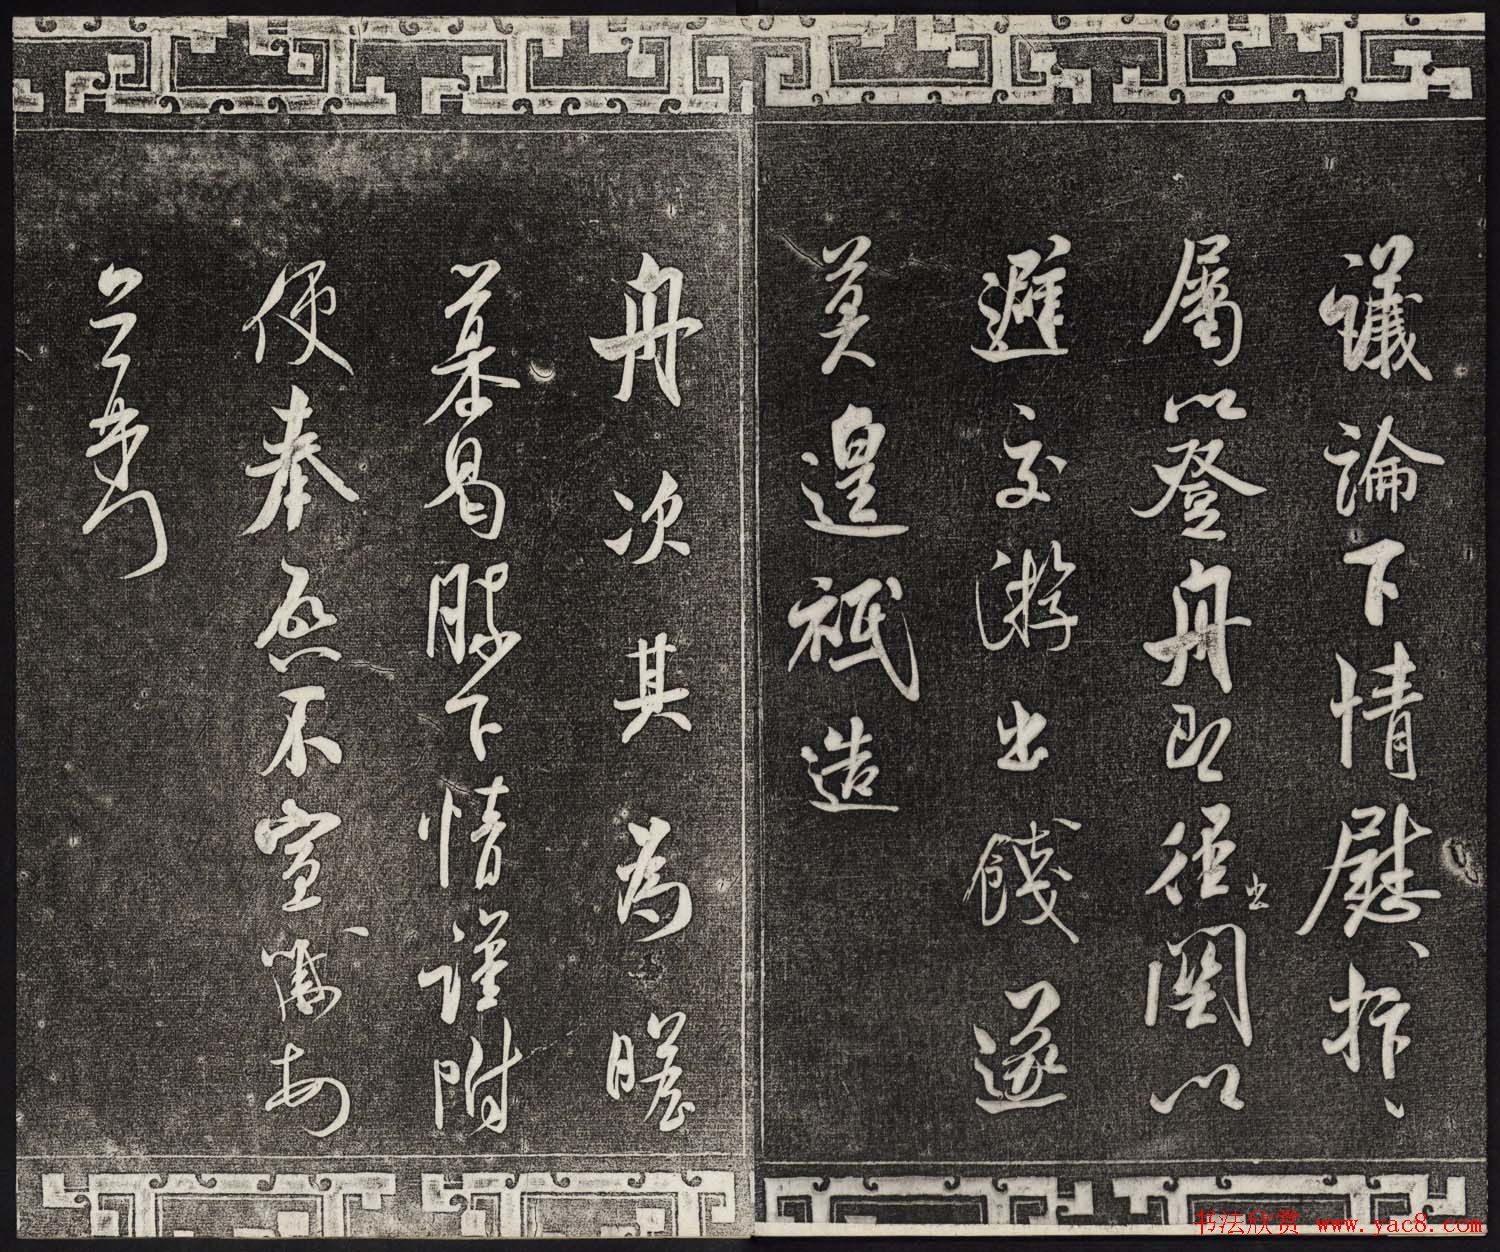 議論下情慰〻抃〻
屬以登舟即徑出關以
避交游出餞遂
莫遑祗造
舟次其為瞻
慕曷勝下情謹附
便奉啓不宣
书法欣赏 www.yac8.com